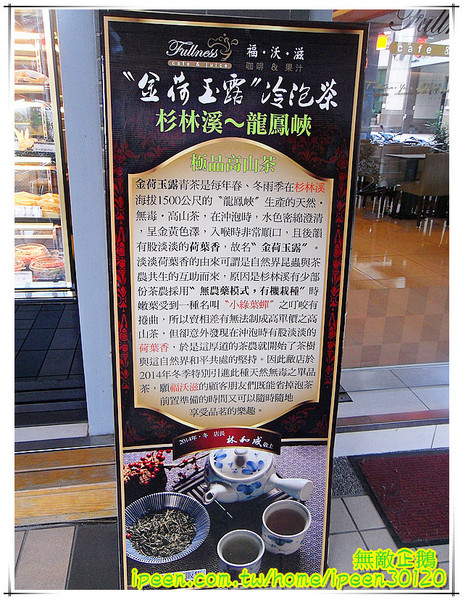 Fullness
cafe & juice
福・沃・滋
咖啡 & 果汁
〝金荷玉露〞冷泡茶
杉林溪～龍鳳峽
極品高山茶
金荷玉露青茶是每年春、冬兩季在杉林溪
海拔1500公尺的〝龍鳳峽〞生產的天然・
無毒・高山茶，在沖泡時，水色密綿澄清
，呈金黃色澤，入喉時非常順口，且後韻
有股淡淡的荷葉香，故名〝金荷玉露〞。
淡淡荷葉香的由來可謂是自然界昆蟲與茶
農共生的互助而來，原因是杉林溪有少部
份茶農採用〝無農藥模式，有機栽種〞時
嫩葉受到一種名叫〝小綠葉蟬〞之叮咬有
捲曲，所以賣相差有無法制成高單價之高
山茶，但卻意外發現在沖泡時有股淡淡的
荷葉香，於是這厚道的茶農就開始了茶樹
與這自然界和平共處的堅持。因此敝店於
2014年冬季特別引進此種天然無毒之單品
茶，願福沃滋的顧客朋友們既能省掉泡茶
前置準備的時間又可以隨時隨地
享受品茗的樂趣。
2014年・冬 店長 林和成 敬上
Fullness
cafe &
無敵企鵝
ipeen.com.tw/home/ipeen30120